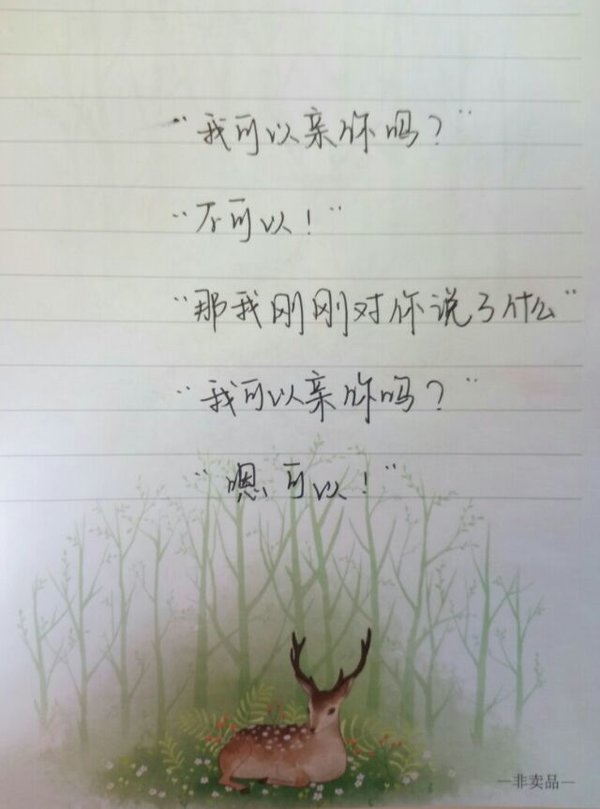 “我可以亲你吗？”
“不可以！”
“那我刚刚对你说了什么”
“我可以亲你吗？”
“嗯可以！”
—非卖品—